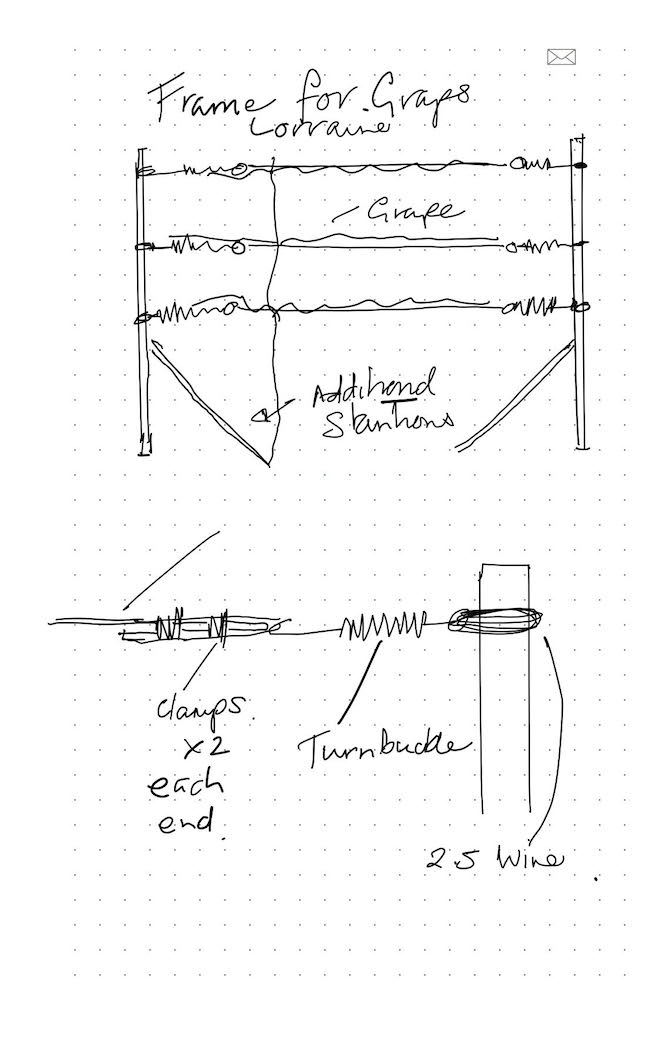 Frame for Graps
Lorraine
Grape
Additional
Stantions
Clamps.
x2
each
end.
Turnbuckle
2.5 Wire